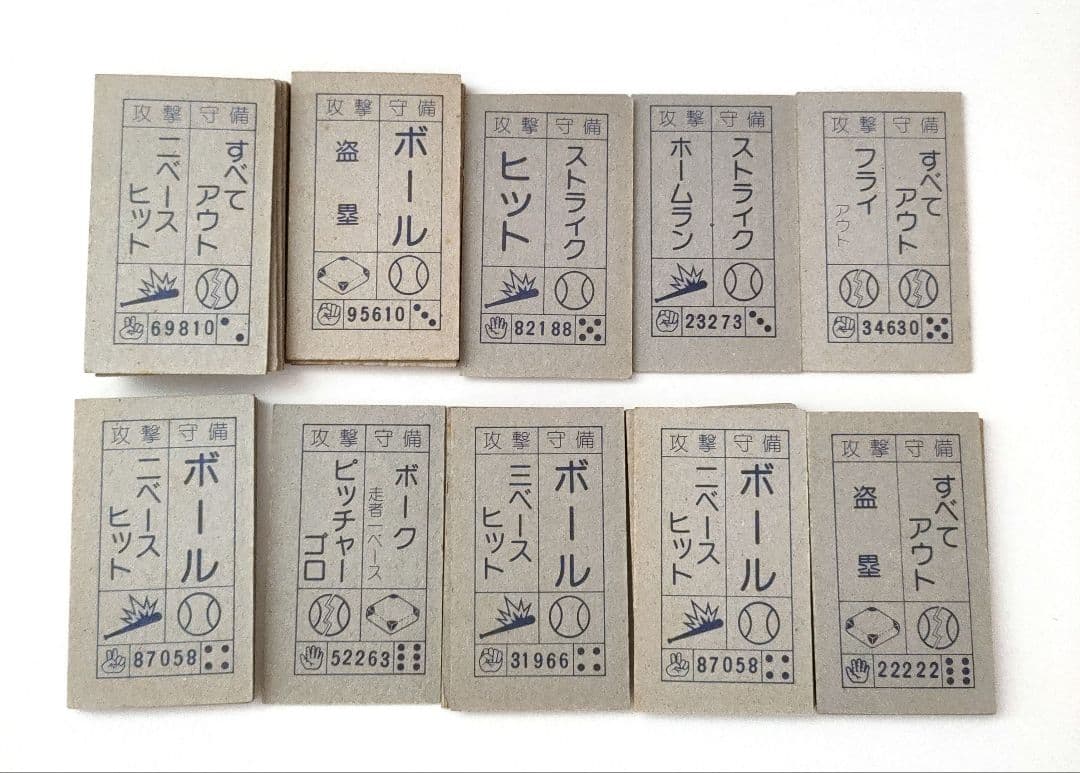 攻撃 守備
すべて
アウト
二ベース
ヒット
69810
攻撃 守備
ボール
盗塁
95610
攻撃 守備
ストライク
ヒット
82188
攻撃 守備
ストライク
ホームラン
23273
攻撃 守備
すべて
アウト
フライ
アウト
34630
攻撃 守備
ボール
二ベース
ヒット
87058
攻撃 守備
ボーク
走者一ベース
ピッチャー
ゴロ
52263
攻撃 守備
ボール
三ベース
ヒット
31966
攻撃 守備
ボール
二ベース
ヒット
87058
攻撃 守備
すべて
アウト
盗塁
22222